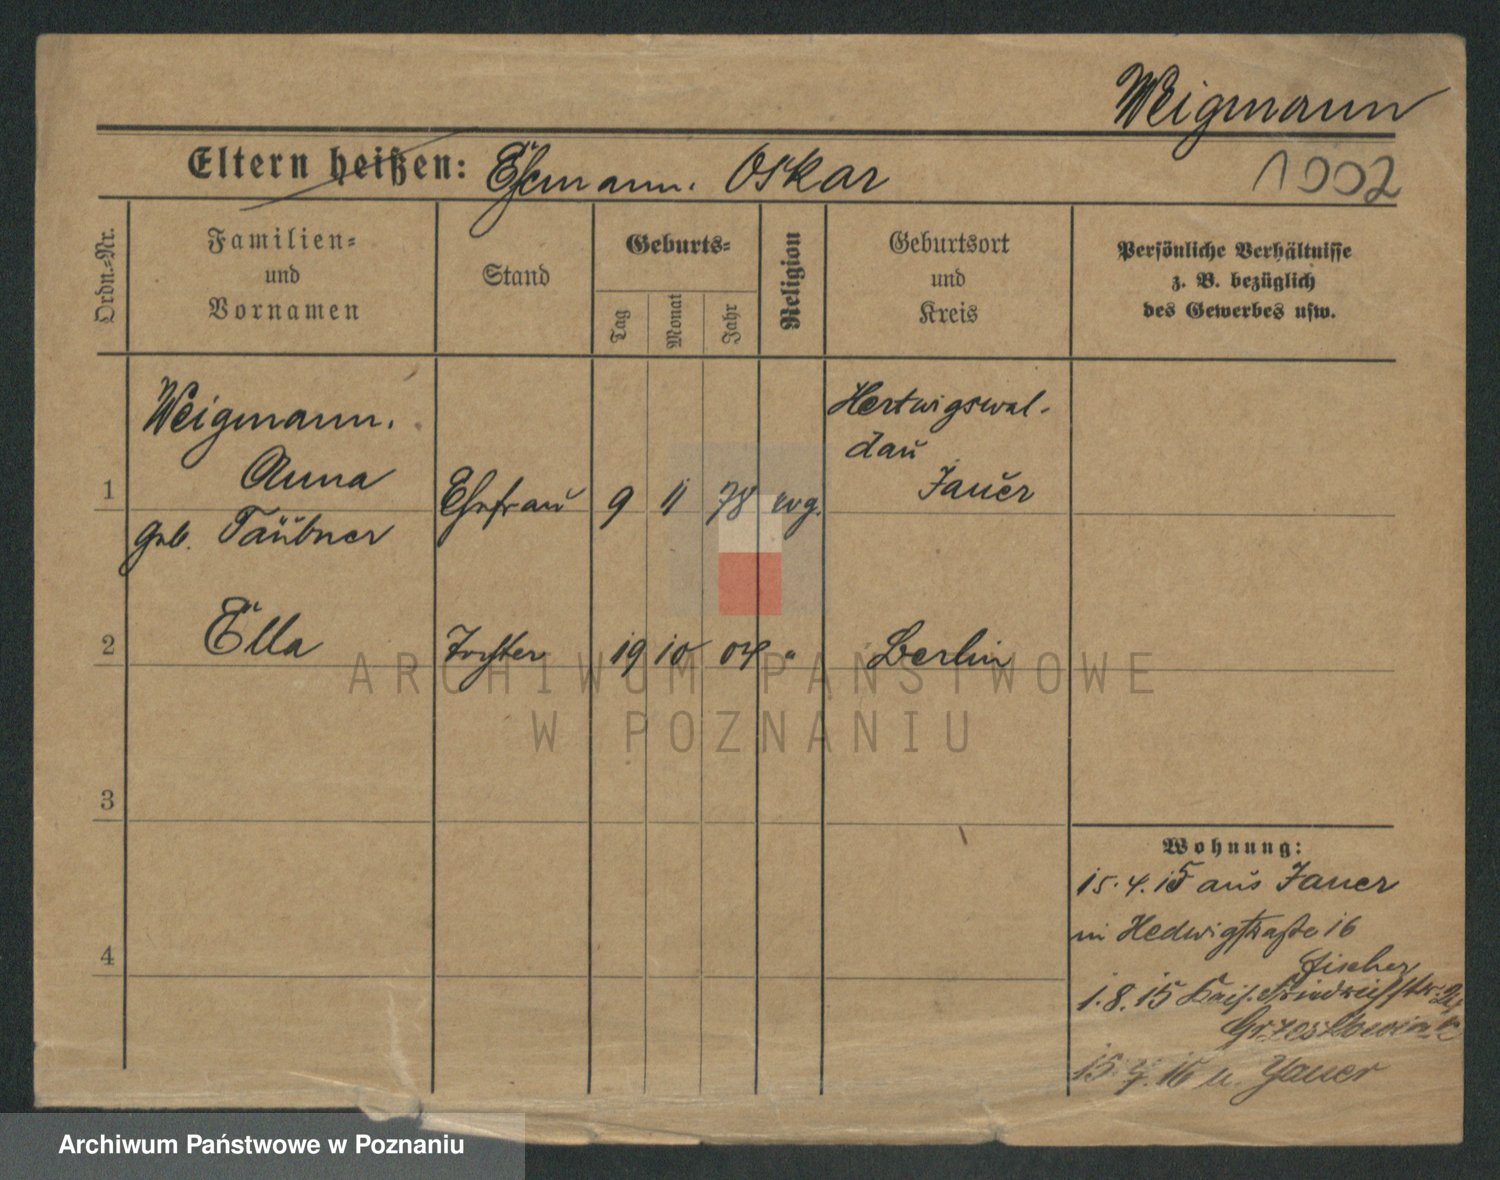 Weigmann
Eltern heißen: Ehemann. Oskar
1002
Ordn.=Nr.
Familien=
und
Vornamen
Stand
Geburts=
Tag
Monat
Jahr
Religion
Geburtsort
und
Kreis
Persönliche Verhältnisse
z. B. bezüglich
des Gewerbes usw.
1
Weigmann.
Anna
geb. Täubner
Ehefrau
9
11
78
evg.
Hertwigswal-
dau
Jauer
2
Ella
Tochter
19
10
04
"
Berlin
3
4
Wohnung:
15.4.15 aus Jauer
in Hedwigstraße 16
Fischer
1.8.15 Kais. Friedrichstr.
15. 4. 16 n. Jauer
ARCHIWUM PAŃSTWOWE
W POZNANIU
Archiwum Państwowe w Poznaniu